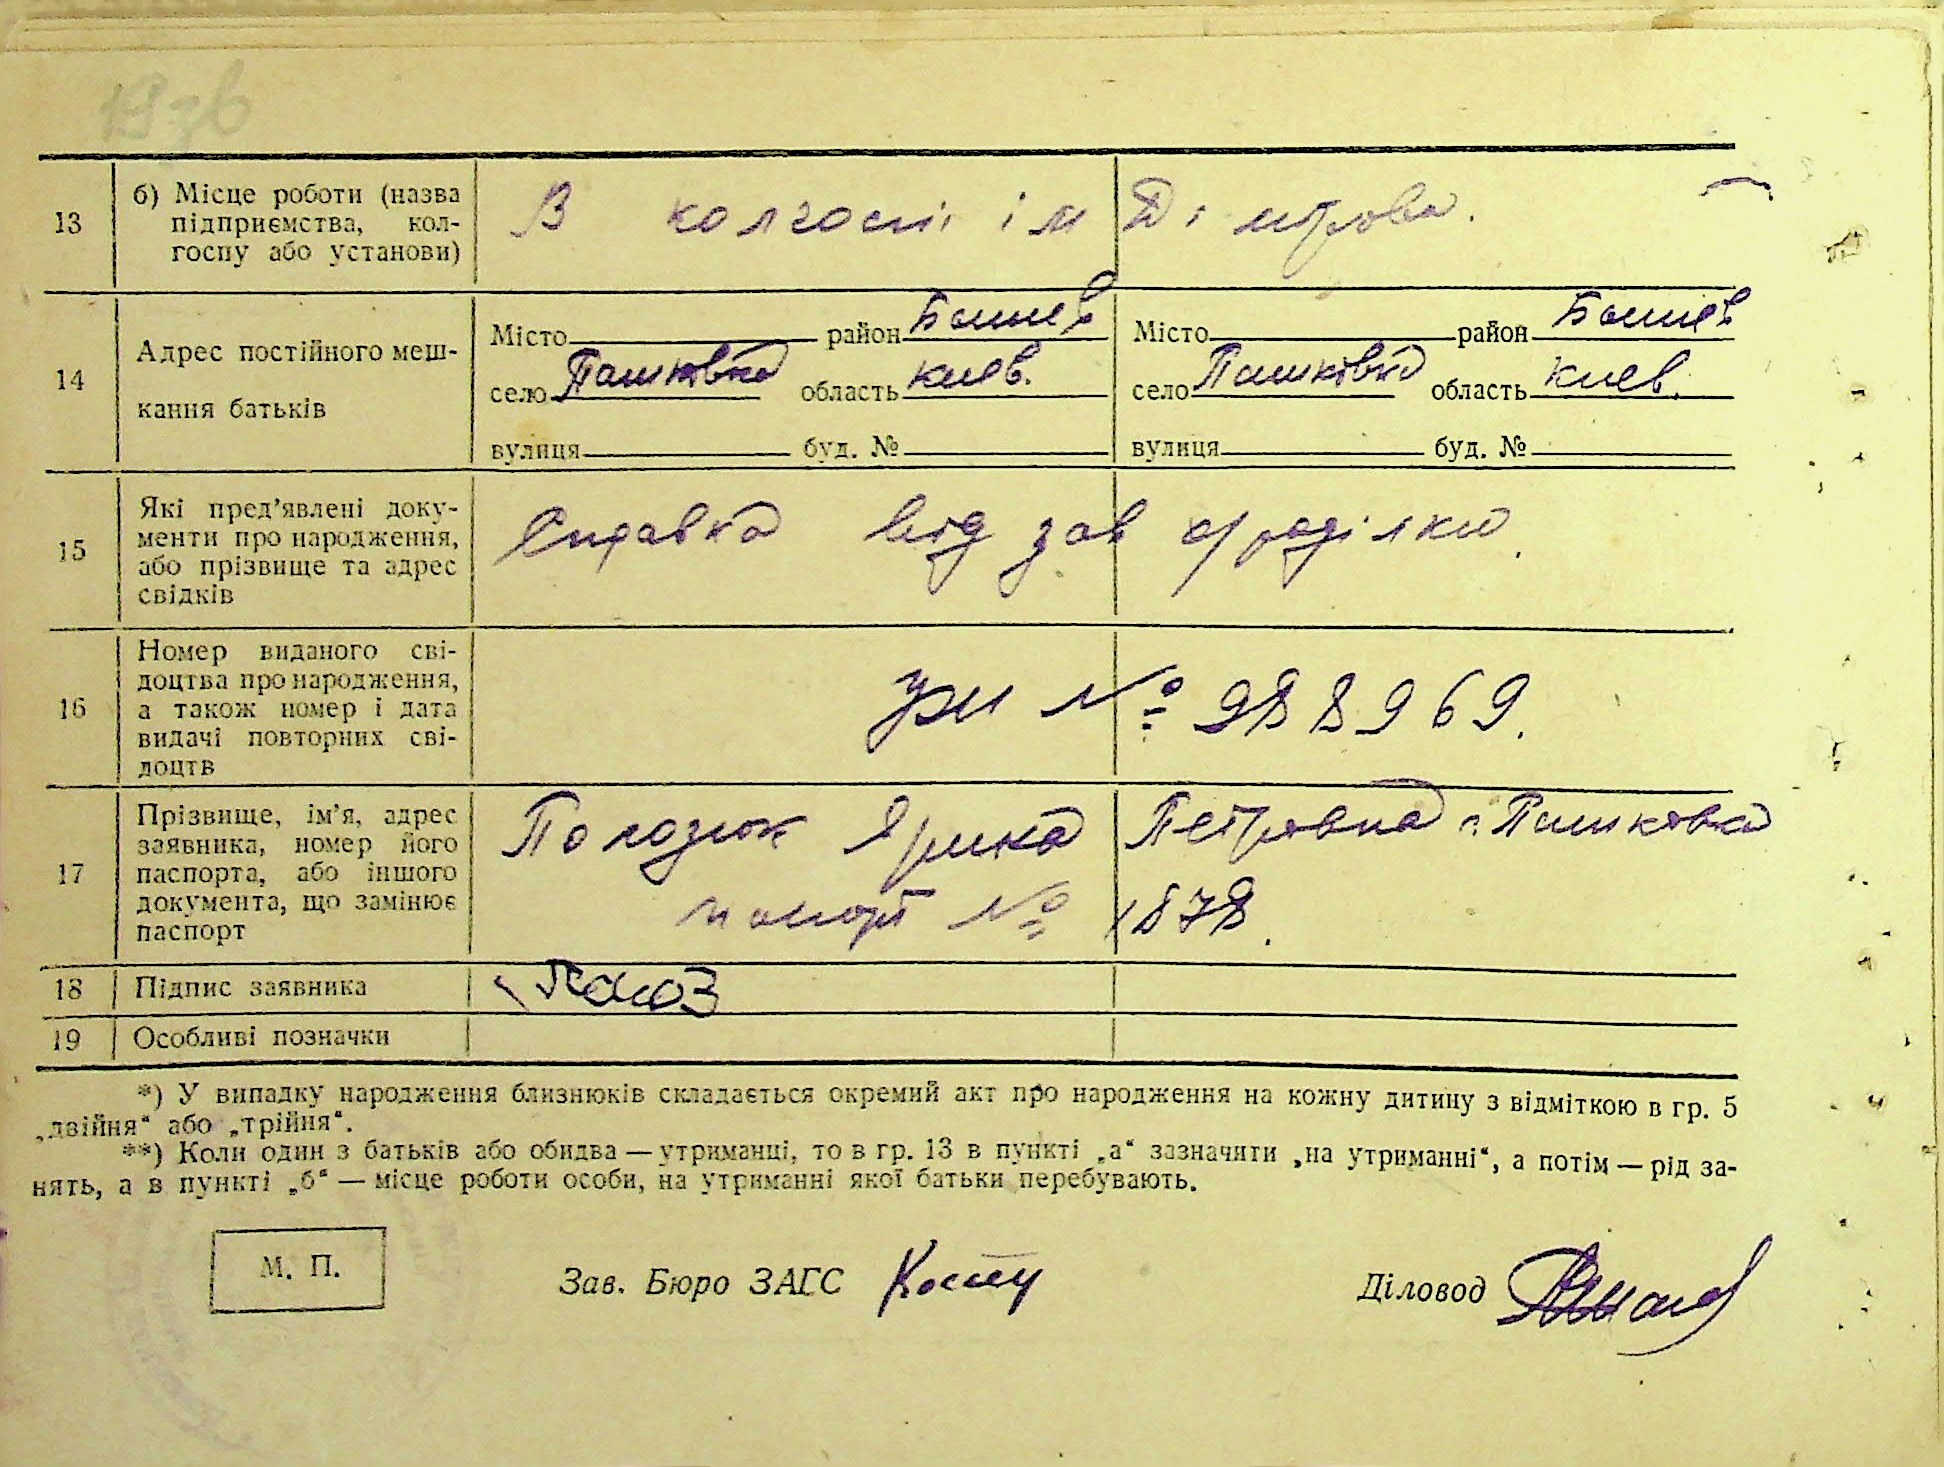 19зв
13 б) Місце роботи (назва
підприємства, кол-
госпу або установи)
В колгоспі ім Дімтрова.
14 Адрес постійного меш-
кання батьків
Місто район Бошев
село Пашковка область Киев.
вулиця буд. №
Місто район Бошев
село Пашковка область Киев.
вулиця буд. №
15 Які пред’явлені доку-
менти про народження,
або прізвище та адрес
свідків
Справка від зав. родділки
16 Номер виданого сві-
доцтва про народження,
а також номер і дата
видачі повторних сві-
доцтв
№ 988969.
17 Прізвище, ім’я, адрес
заявника, номер його
паспорта, або іншого
документа, що замінює
паспорт
Полозюк Ярина Петровна с. Пашковка
паспорт № 1878.
18 Підпис заявника
Полоз
19 Особливі позначки
*) У випадку народження близнюків складається окремий акт про народження на кожну дитину з відміткою в гр. 5
„двійня“ або „трійня“.
**) Коли один з батьків або обидва — утриманці, то в гр. 13 в пункті „а“ зазначити „на утриманні“, а потім — рід за-
нять, а в пункті „б“ — місце роботи особи, на утриманні якої батьки перебувають.
М. П.
Зав. Бюро ЗАГС
Діловод